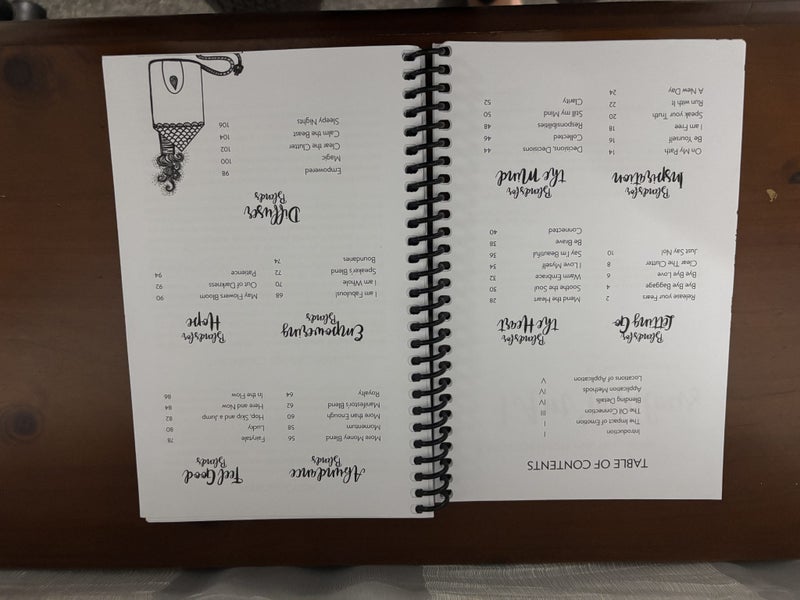 TABLE OF CONTENTS
Introduction I
The Impact of Emotion I
The Oil Connection III
Blending Details IV
Application Methods IV
Locations of Application V
Blends for
Letting Go
Release your Fears 2
Bye Bye Baggage 4
Bye Bye Love 6
Clear The Clutter 8
Just Say No! 10
Blends for
the Heart
Mend the Heart 28
Soothe the Soul 30
Warm Embrace 32
I Love Myself 34
Say I'm Beautiful 36
Be Brave 38
Connected 40
Blends for
Inspiration
On My Path 14
Be Yourself 16
I am Free 18
Speak your Truth 20
Run with It 22
A New Day 24
Blends for
the Mind
Decisions, Decisions 44
Collected 46
Responsibilities 48
Still my Mind 50
Clarity 52
Abundance
Blends
More Money Blend 56
Momentum 58
More than Enough 60
Manifestor's Blend 62
Royalty 64
Feel Good
Blends
Fairytale 78
Lucky 80
Hop, Skip and a Jump 82
Here and Now 84
In the Flow 86
Empowering
Blends
I am Fabulous! 68
I am Whole 70
Speaker's Blend 72
Boundaries 74
Blends for
Hope
May Flowers Bloom 90
Out of Darkness 92
Patience 94
Diffuser
Blends
Empowered 98
Magic 100
Clear the Clutter 102
Calm the Beast 104
Sleepy Nights 106